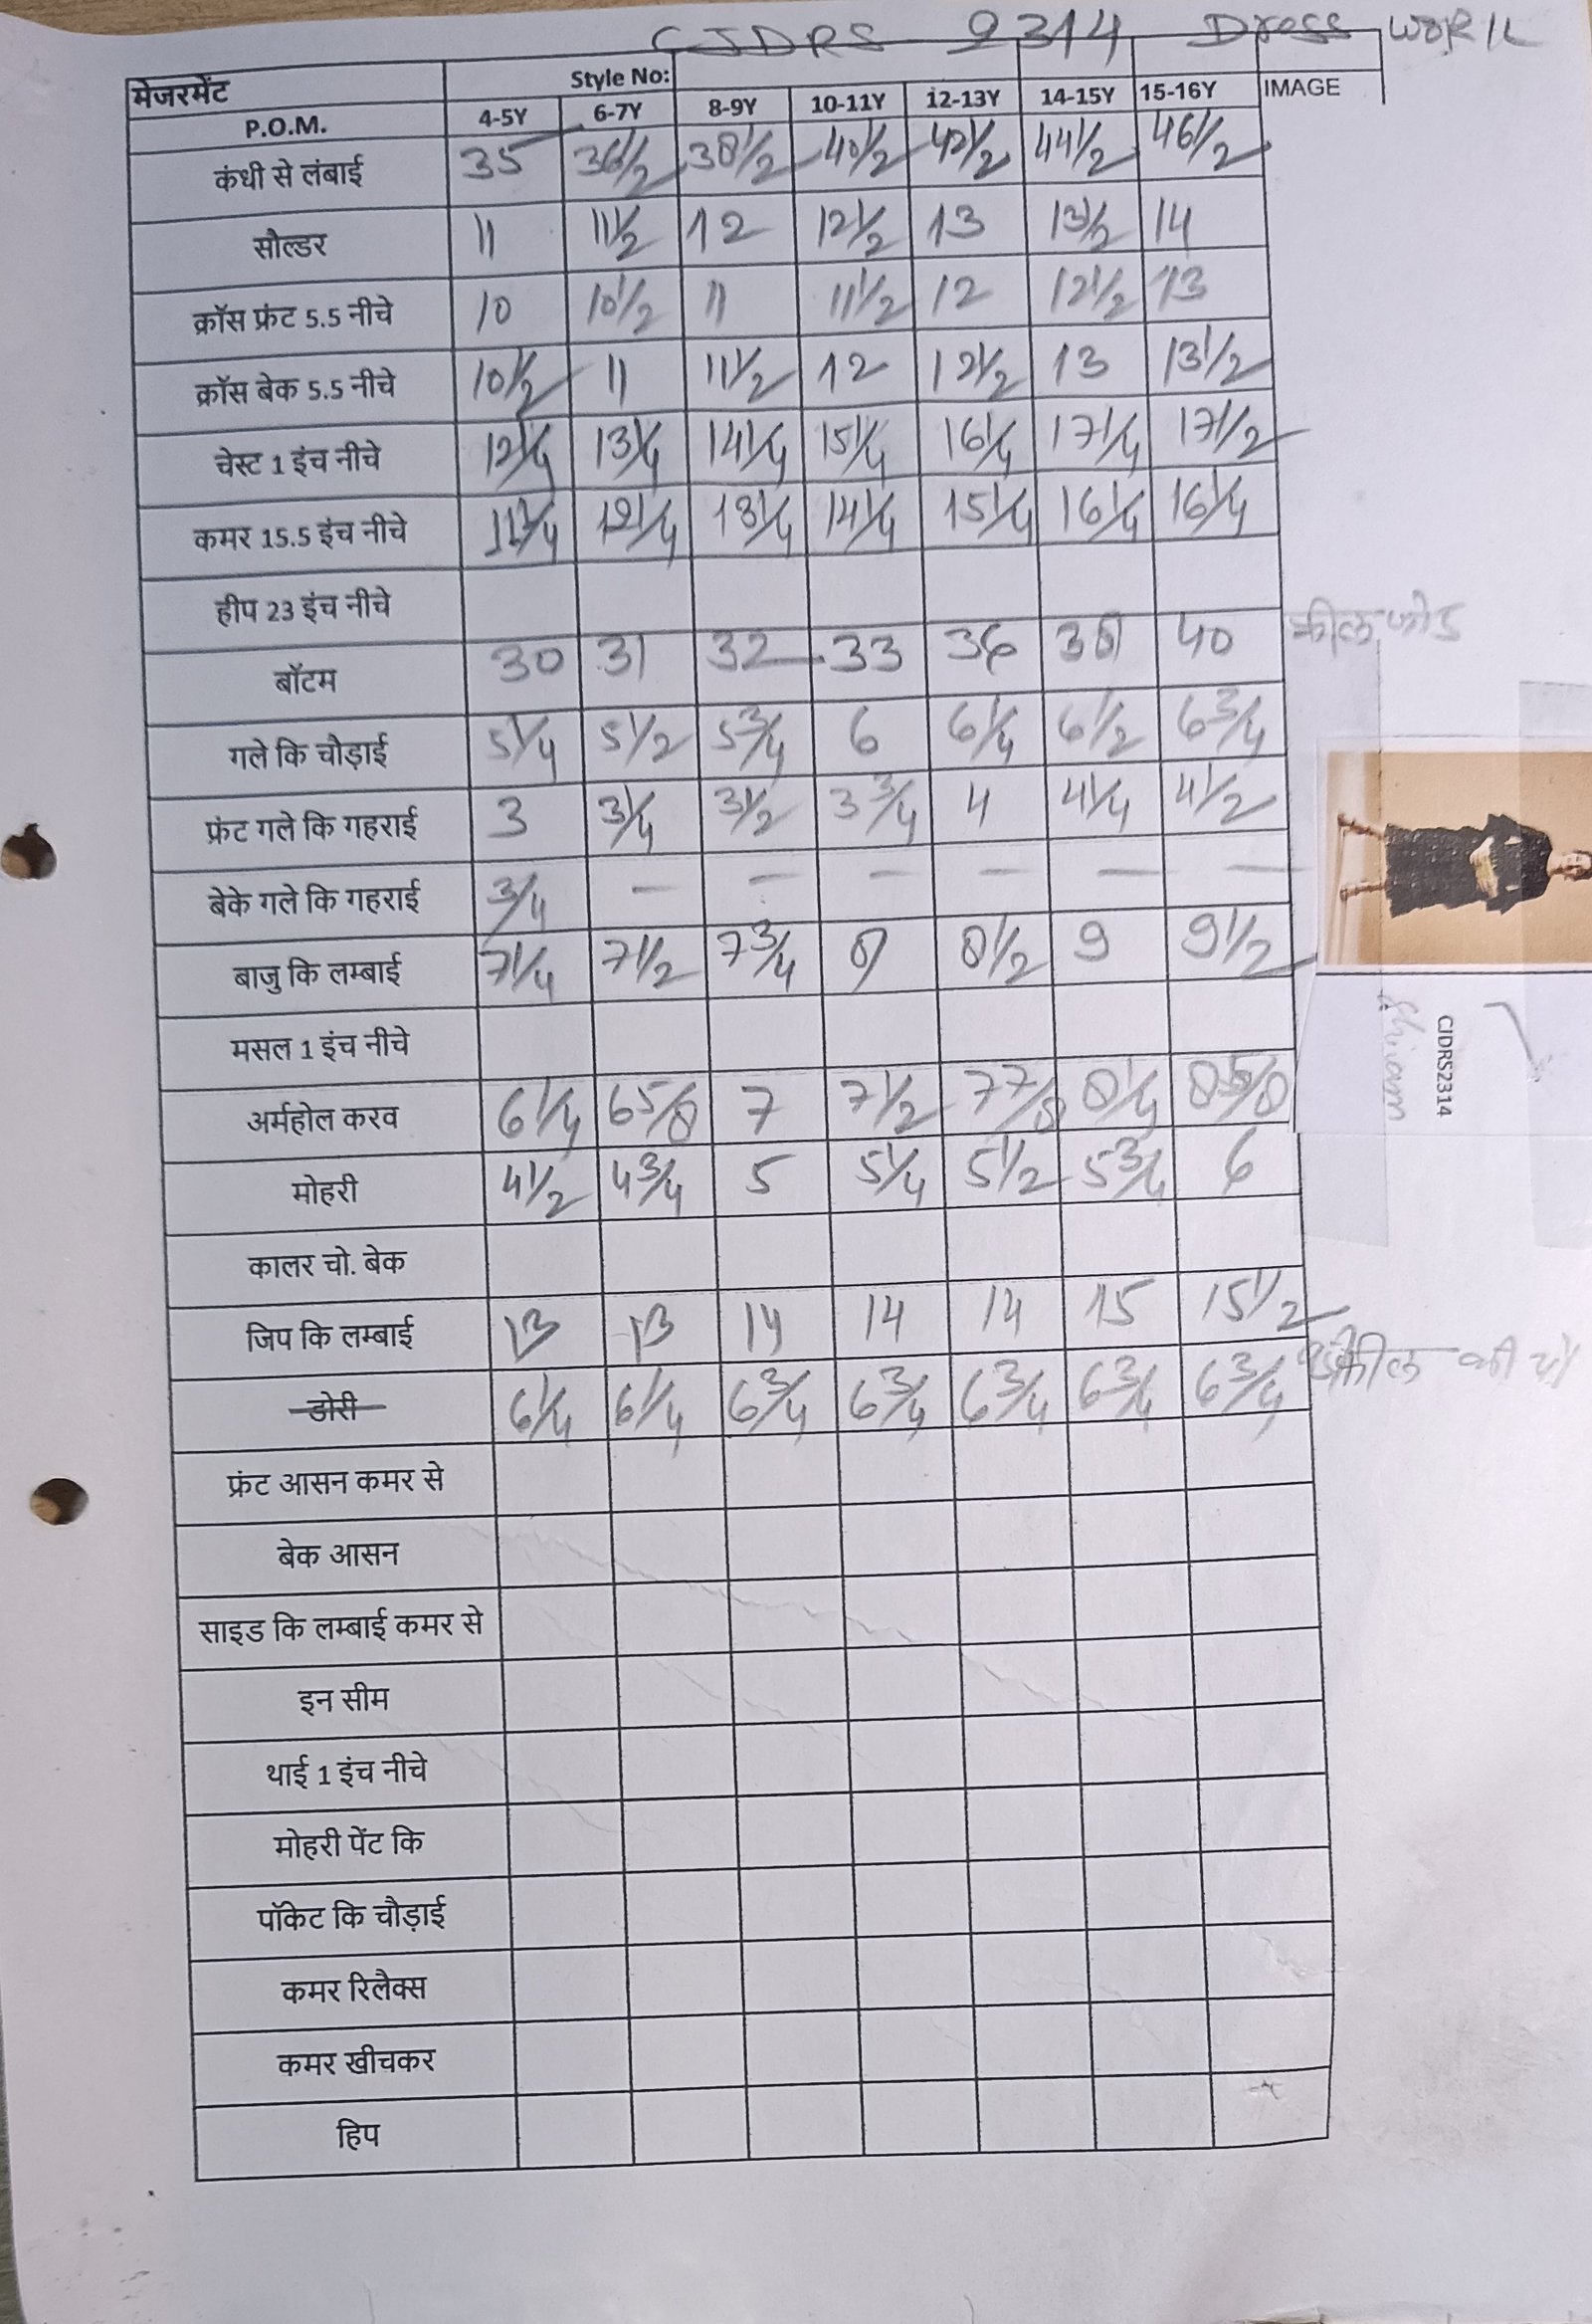 CJDRS 2314 Dress WORK
मेजरमेंट Style No: IMAGE
P.O.M. 4-5Y 6-7Y 8-9Y 10-11Y 12-13Y 14-15Y 15-16Y
कंधी से लंबाई 35 36 1/2 38 1/2 40 1/2 42 1/2 44 1/2 46 1/2
सौल्डर 11 11 1/2 12 12 1/2 13 13 1/2 14
क्रॉस फ्रंट 5.5 नीचे 10 10 1/2 11 11 1/2 12 12 1/2 13
क्रॉस बेक 5.5 नीचे 10 1/2 11 11 1/2 12 12 1/2 13 13 1/2
चेस्ट 1 इंच नीचे 12 1/4 13 1/4 14 1/4 15 1/4 16 1/4 17 1/4 17 1/2
कमर 15.5 इंच नीचे 11 1/4 12 1/4 13 1/4 14 1/4 15 1/4 16 1/4 16 1/4
हीप 23 इंच नीचे
बॉटम 30 31 32 33 36 38 40
गले कि चौड़ाई 5 1/4 5 1/2 5 3/4 6 6 1/4 6 1/2 6 3/4
फ्रंट गले कि गहराई 3 3 1/4 3 1/2 3 3/4 4 4 1/4 4 1/2
बेके गले कि गहराई 3/4 – – – – – –
बाजु कि लम्बाई 7 1/4 7 1/2 7 3/4 8 8 1/2 9 9 1/2
मसल 1 इंच नीचे
अर्महोल करव 6 1/4 6 5/8 7 7 1/2 7 7/8 8 1/4 8 5/8
मोहरी 4 1/2 4 3/4 5 5 1/4 5 1/2 5 3/4 6
कालर चो. बेक
जिप कि लम्बाई 13 13 14 14 14 15 15 1/2
डोरी 6 1/4 6 1/4 6 3/4 6 3/4 6 3/4 6 3/4 6 3/4
फ्रंट आसन कमर से
बेक आसन
साइड कि लम्बाई कमर से
इन सीम
थाई 1 इंच नीचे
मोहरी पेंट कि
पॉकेट कि चौड़ाई
कमर रिलैक्स
कमर खीचकर
हिप
CJDRS2314
Shivam